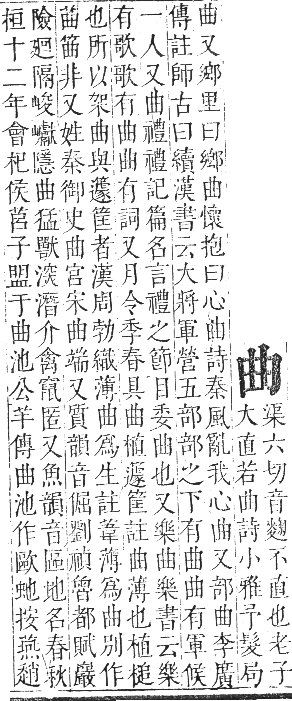 曲
渠六切音麴不直也老子
大直若曲詩小雅予髮局
曲又鄉里曰鄉曲懷抱曰心曲詩秦風亂我心曲又部曲李廣
傳註師古曰續漢書云大將軍營五部部之下有曲曲有軍候
一人又曲禮禮記篇名言禮之節目委曲也又樂曲樂書云樂
有歌歌有曲曲有詞又月令季春具曲植籧筐註曲薄也植槌
也所以架曲與籧筐者漢周勃織薄曲為生註葦薄為曲別作
苗笛非又姓秦御史曲宮宋曲端又質韻音倔劉禎魯都賦巖
險廻隔峻巘隱曲猛獸深潛介禽竄匿又魚韻音區地名春秋
桓十二年會杞侯莒子盟于曲池公羊傳曲池作歐虵按燕趙